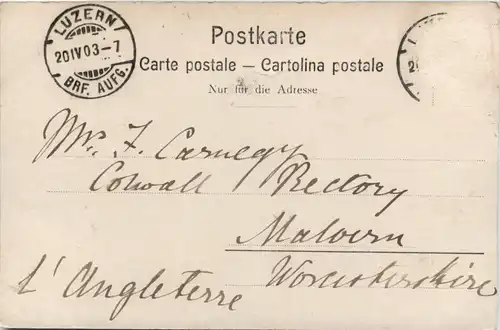 LUZERN
20 IV 03 - 7
BRF. AUFG.
Postkarte
Carte postale — Cartolina postale
Nur für die Adresse
Mrs. F. Carnegy
Colwall Rectory
Malvern
Worcestershire
l'Angleterre